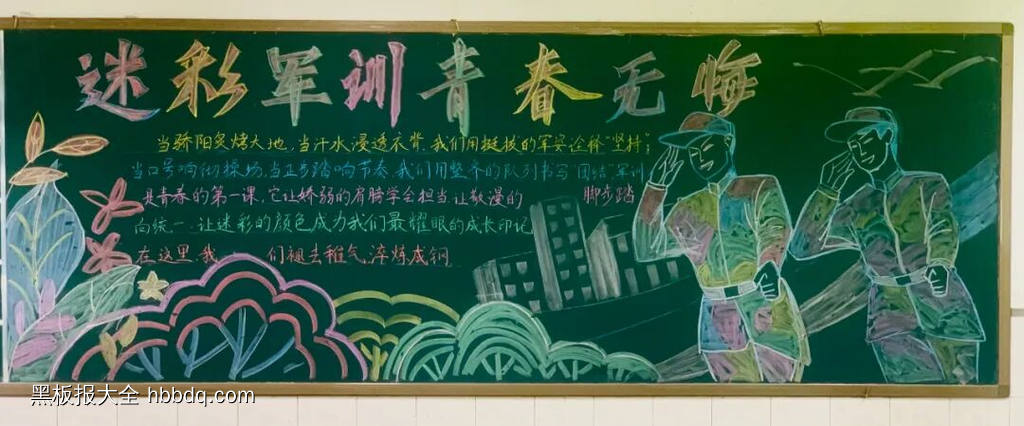 迷彩军训青春无悔
当骄阳炙烤大地,当汗水浸透衣背,我们用挺拔的军姿诠释"坚持";
当口号响彻操场,当正步踏响节奏,我们用整齐的队列书写"团结"军训
是青春的第一课,它让娇弱的肩膀学会担当,让散漫的 脚步踏
向统一,让迷彩的颜色成为我们最耀眼的成长印记
在这里,我 们褪去稚气,淬炼成钢
黑板报大全 hbbdq.com